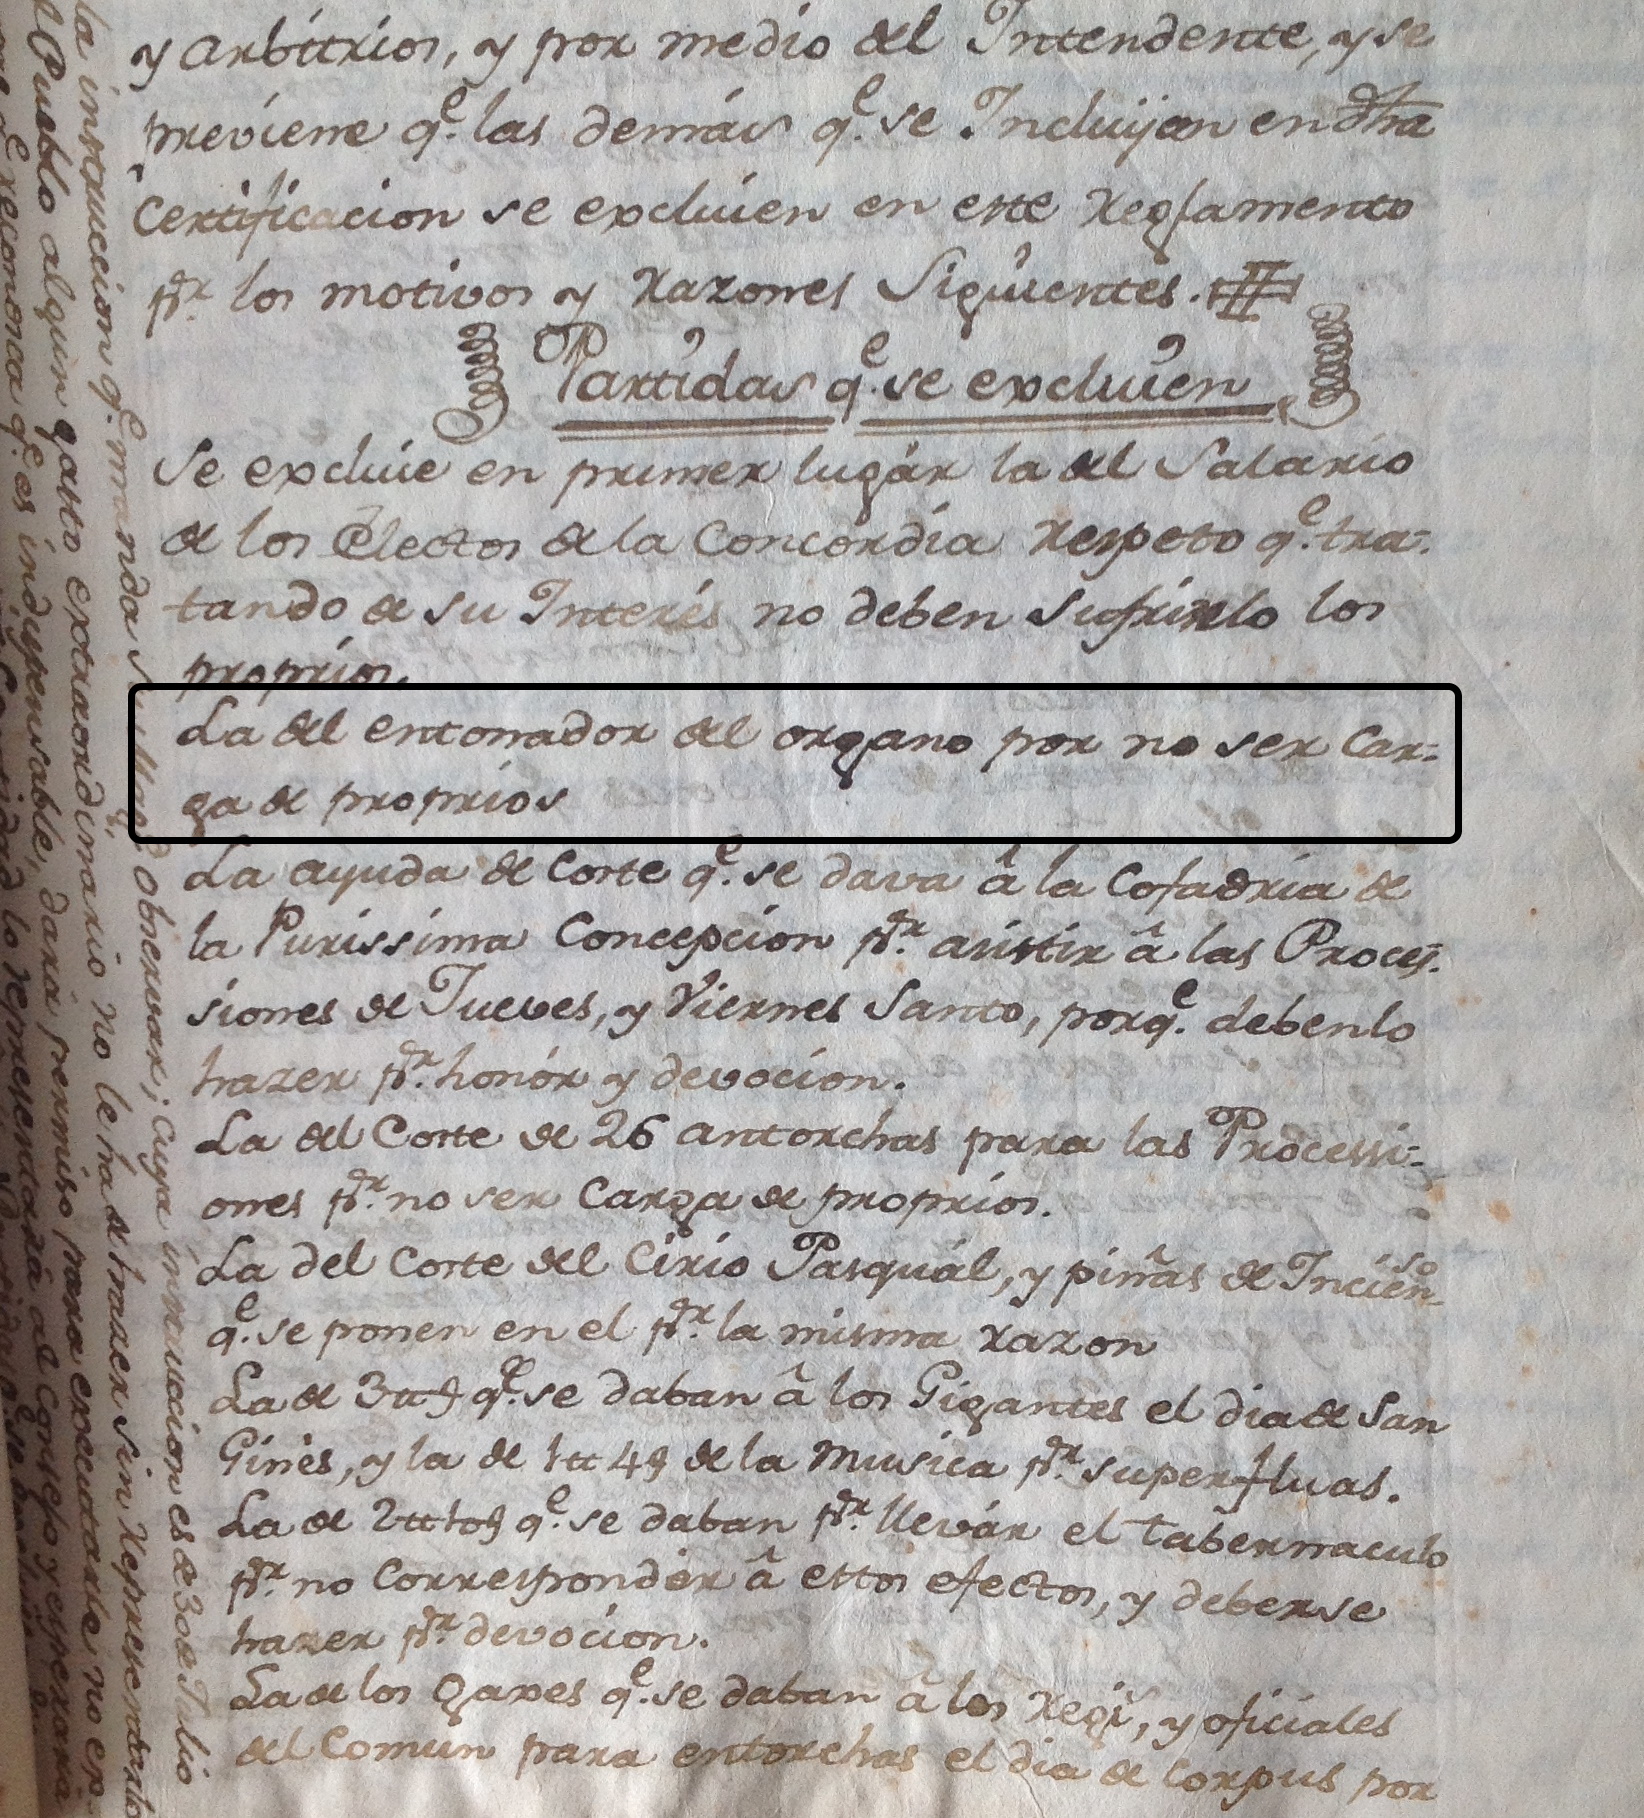 y arbitrios, y por medio del Intendente, y se
previene q.e las demás q.e se Incluijen en dha
Certificacion se excluien en este Reglamento
pr. los motivos y razones siguientes.
Partidas q.e se excluien
Se excluie en primer lugár la del Salario
de los Electos de la Concordia respeto q.e tra-
tando de su Interés no deben sufrirlo los
proprios.
La del entonador del organo por no ser Car-
ga de proprios
La ayuda de Corte q.e se dava â la Cofadria de
la Purissima Concepcion pr. asistir â las Proces-
siones de Jueves, y Viernes Santo, porq.e debenlo
hazer pr. honór y devocion.
La del Corte de 26 antorchas para las Processi-
ones pr. no ser Carga de proprios.
La del Corte del Cirio Pasquál, y piñas de Incienso
q.e se ponen en el pr. la misma razon
La de 3tt q.e se daban â los Gigantes el dia de San
Ginés, y la de 1tt 4s de la Musica pr. superfluas.
La de 2tt 10s q.e se daban pr. llevár el tabernaculo
pr. no Correspondér â estos efectos, y deberse
hazer pr. devocion.
La de los Gaxes q.e se daban â los Regi, y oficiales
del Comun para entorchas el dia de Corpus por
la instruccion q.e manda su Mag.d observar; cuya instruccion es de 30 de Julio
Pueblo algun gasto extraordinario no le ha de hazer sin representarlo
q.e es indispensable, dará permiso para executarle, no ex-
lo representará al Consejo y esperará